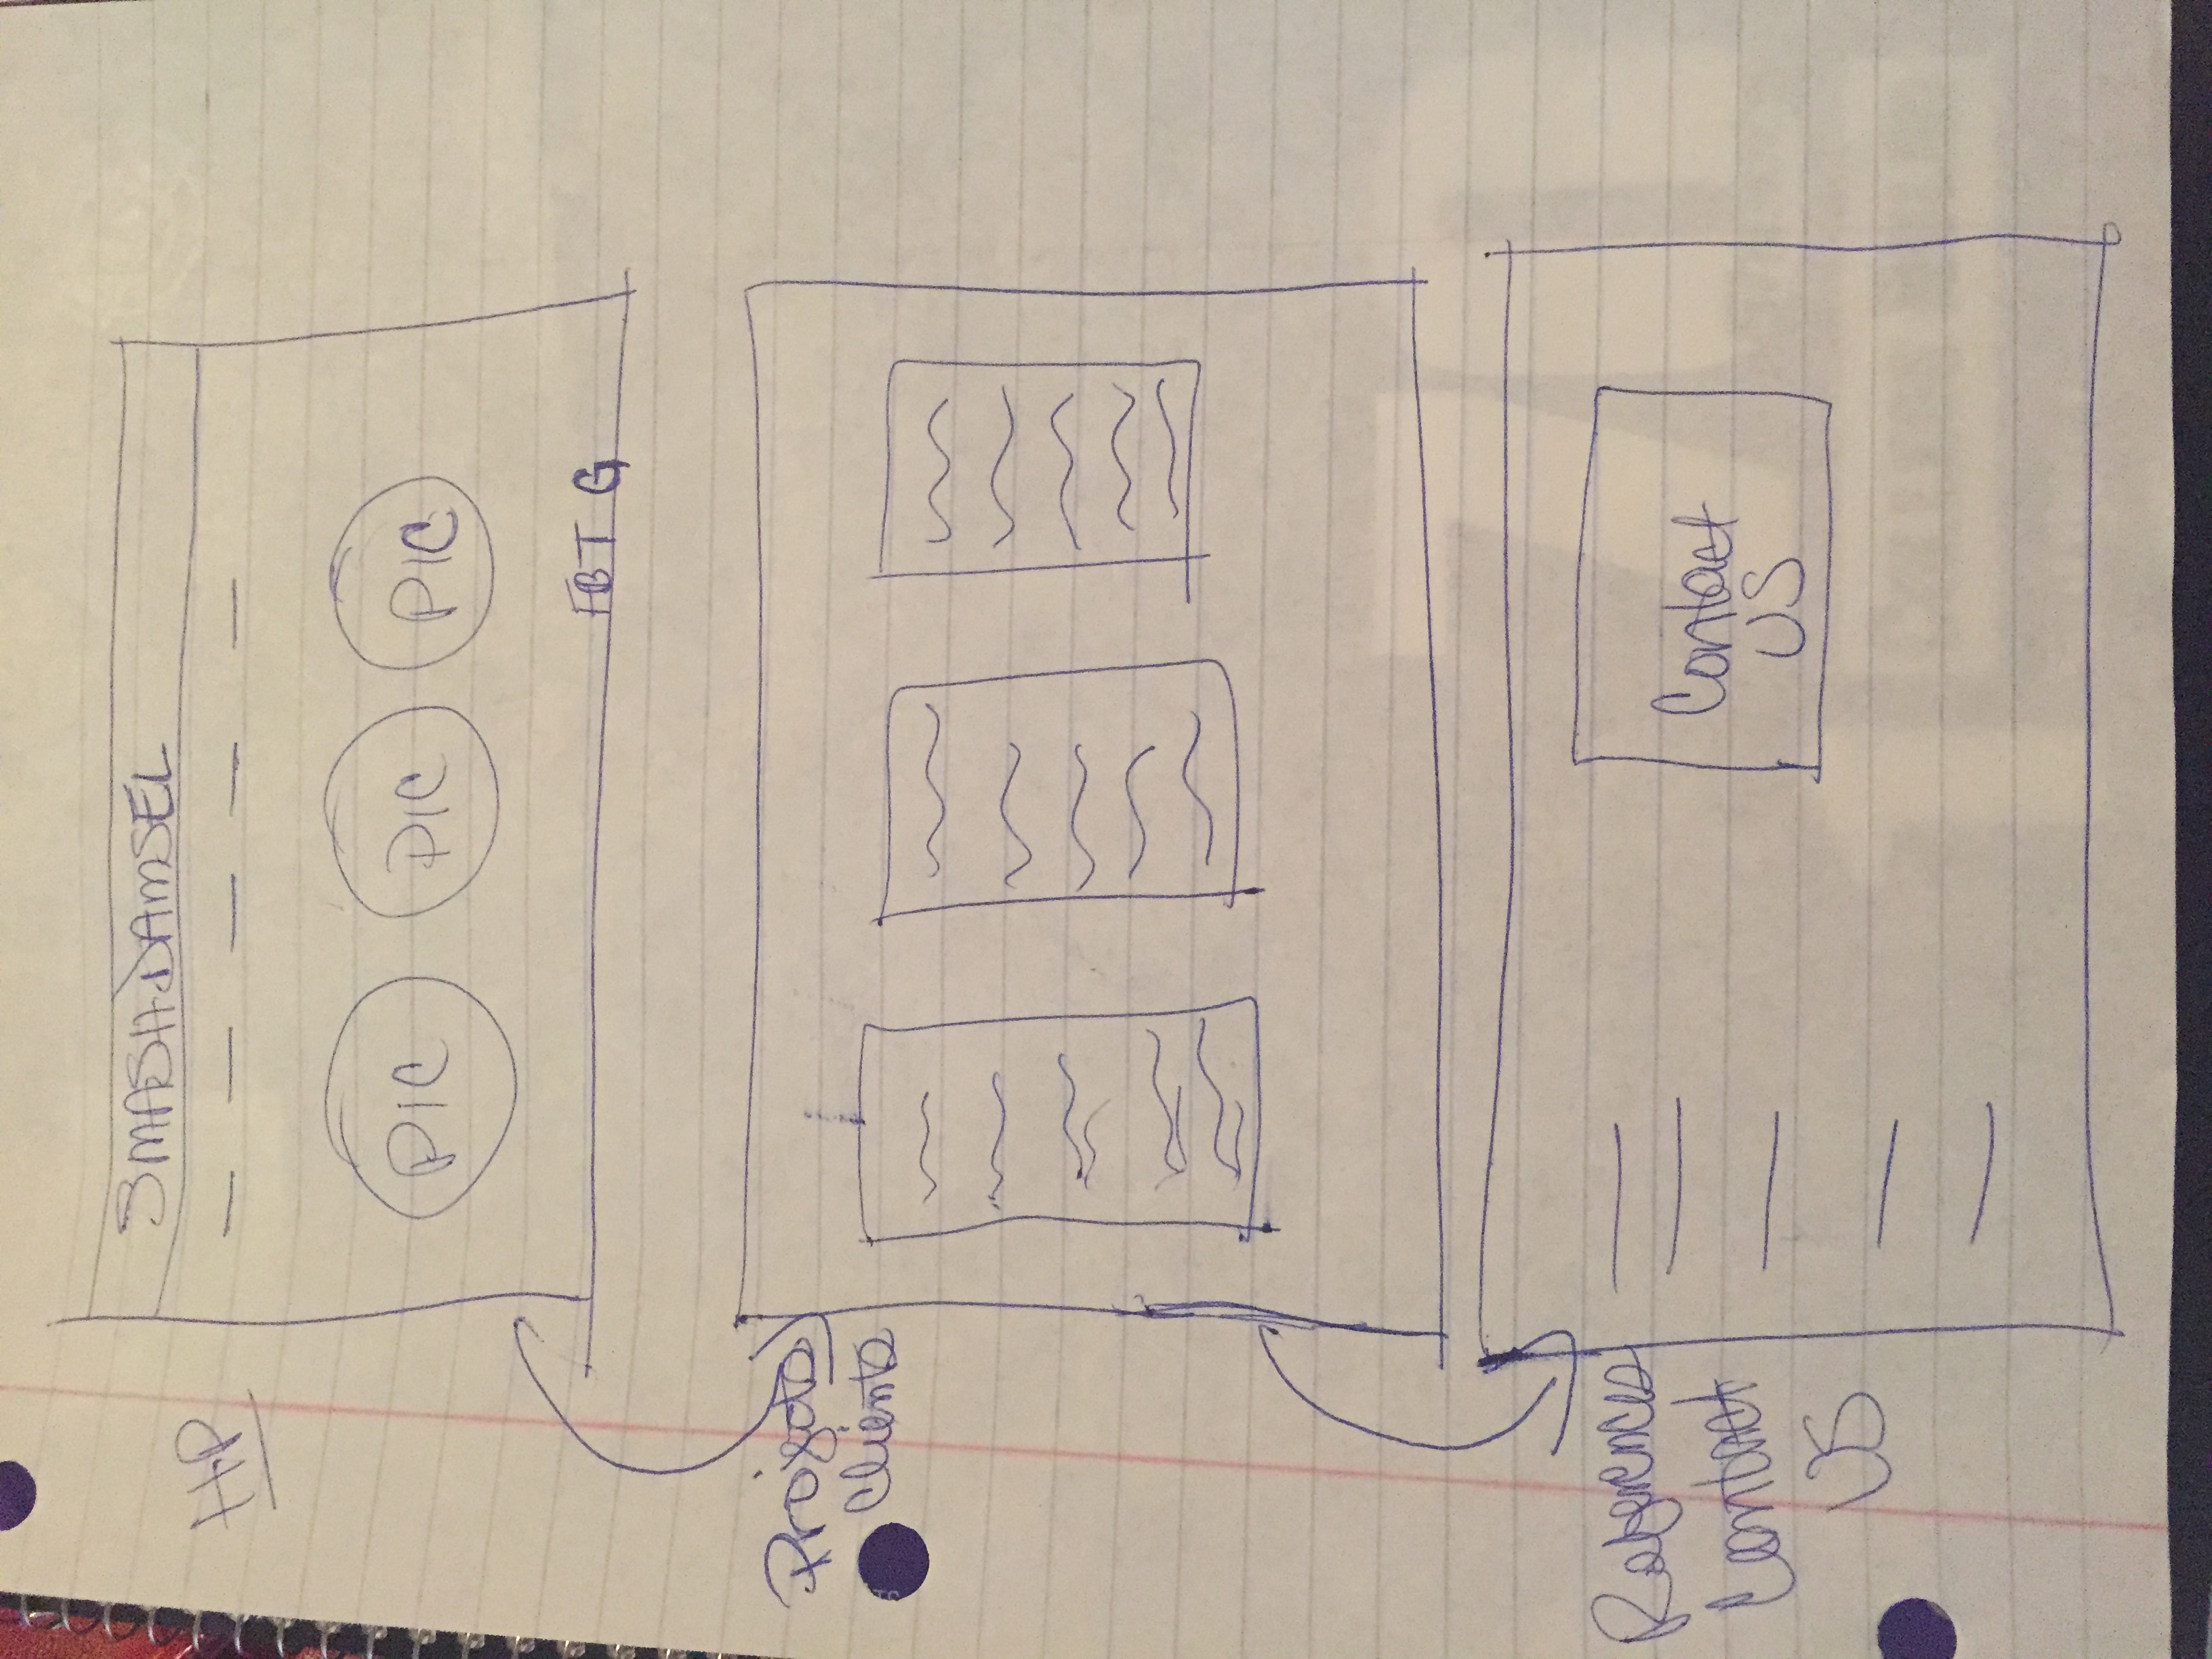 SMASH DAMSEL
HP
PIC PIC PIC
FB T G
Projects
Clients
References
Contact
US
Contact
US